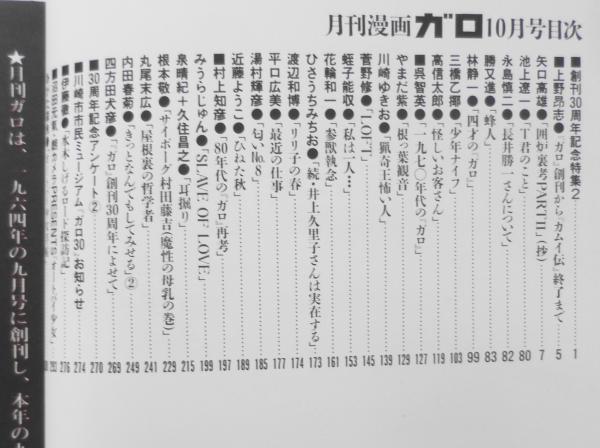 月刊漫画 ガロ 10月号目次
■創刊30周年記念特集2 1
■上野昂志●『ガロ』創刊から『カムイ伝』終了まで 5
矢口高雄●「囲炉裏考PARTⅡ」(抄) 7
池上遼一●「T君のこと」 80
永島慎二●「長井勝一さんについて」 82
勝又進●「蜂人」 83
林静一●「四才の『ガロ』」 99
三橋乙揶●「少年ナイフ」 103
高信太郎●「怪しいお客さん」 119
■呉智英●「一九七〇年代の『ガロ』」 127
やまだ紫●「根っ葉観音」 129
川崎ゆきお●「猟奇王怖い人」 139
菅野修●「LOFT」 145
蛭子能収●「私は一人…」 153
花輪和一●「参獄執念」 161
ひさうちみちお●「続・井上久里子さんは実在する」 173
渡辺和博●「リリ子の春」 174
平口広美●「最近の仕事」 177
湯村輝彦●「匂いNo.8」 185
近藤ようこ●「ひねた秋」 189
■村上知彦●「80年代の『ガロ』再考」 197
みうらじゅん●「SLAVE OF LOVE」 199
泉晴紀+久住昌之●「耳掘り」 215
根本敬●「サイボーグ村田藤吉(魔性の母乳の巻)」 229
丸尾末広●「屋根裏の哲学者」 241
内田春菊●「きっとなんでもしてみせる」② 249
四方田犬彦●「『ガロ』創刊30周年によせて」 269
■30周年記念アンケート② 270
■川崎市市民ミュージアム「ガロ30」お知らせ 274
■伊藤徹●「水木しげるロード探訪記」 276
★月刊ガロは、一九六四年の九月号に創刊し、本年の